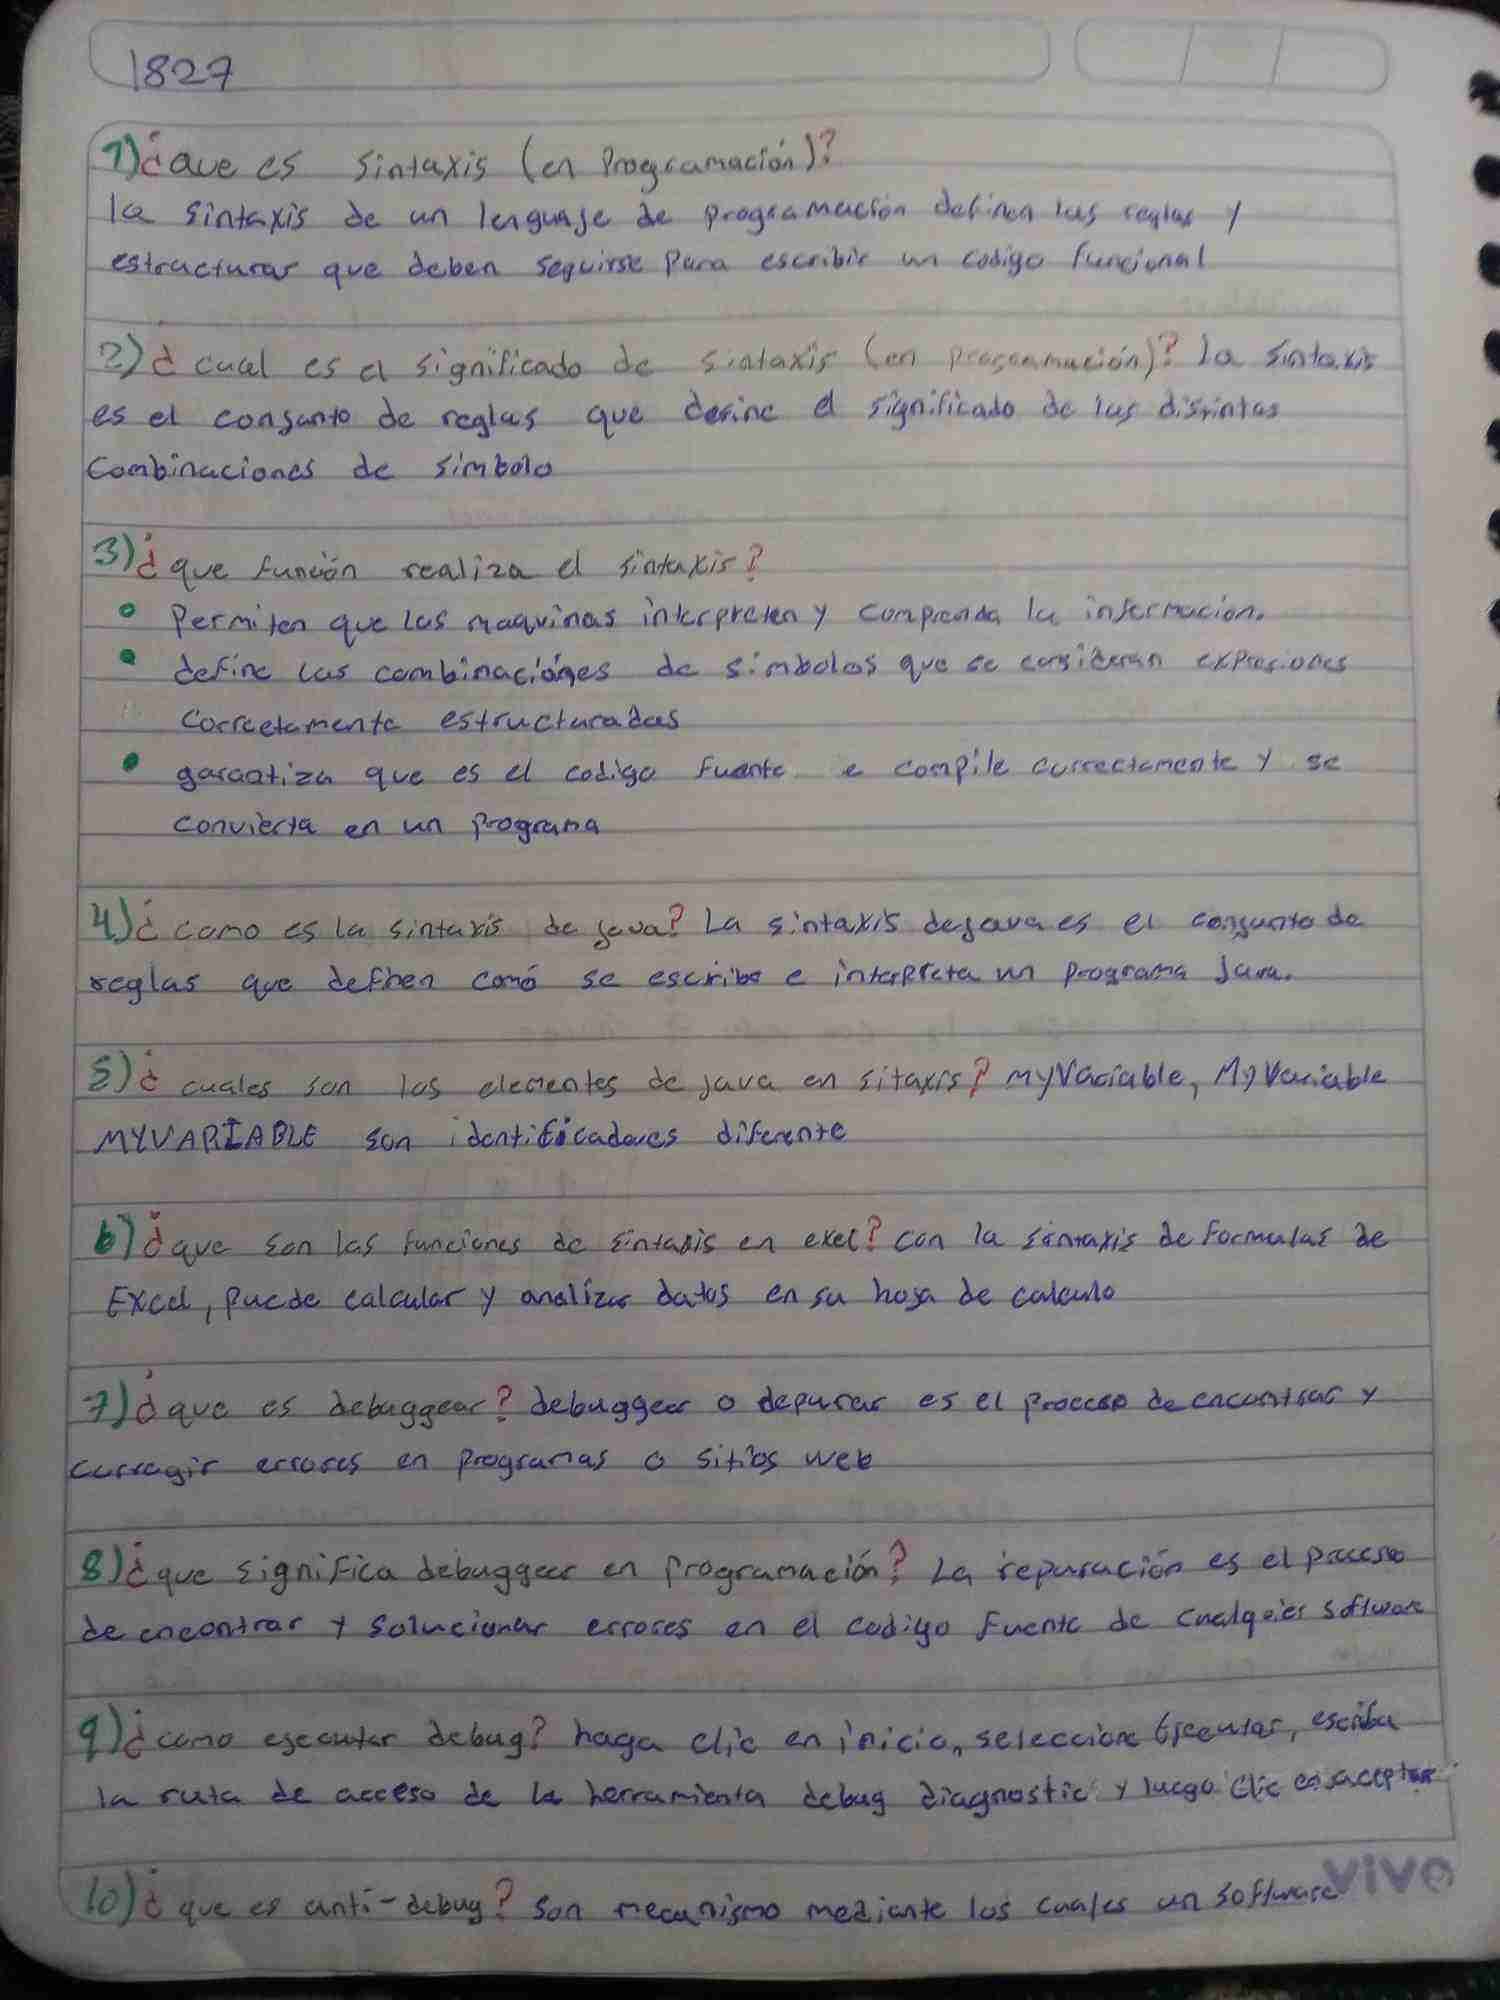 1827
1) ¿que es sintaxis (en Programación)?
la sintaxis de un lenguaje de programación definen las reglas y
estructuras que deben seguirse para escribir un codigo funcional
2) ¿cual es el significado de sintaxis (en programación)? la sintaxis
es el conjunto de reglas que define el significado de las distintas
combinaciones de simbolo
3) ¿que función realiza el sintaxis?
• Permiten que las maquinas interpreten y comprenda la informacion.
• define las combinaciónes de simbolos que se consideran expresiones
correctamente estructuradas
• garantiza que es el codigo fuente e compile correctamente y se
convierta en un programa
4) ¿como es la sintaxis de java? La sintaxis dejava es el conjunto de
reglas que definen comó se escribe e interpreta un programa Java.
5) ¿cuales son los elementes de java en sitaxis? myVariable, MyVariable
MYVARIABLE son identificadores diferente
6) ¿que son las funciones de sintaxis en exel? con la sintaxis de Formulas de
Excel, puede calcular y analizar datos en su hoja de calculo
7) ¿que es debuggear? debuggear o depurar es el proceso de encontrar y
corregir errores en programas o sitios web
8) ¿que significa debuggear en programación? La repuración es el proceso
de encontrar y solucionar errores en el codigo fuente de cualquier software
9) ¿como ejecutar debug? haga clic en inicio, seleccione Ejecutar, escriba
la ruta de acceso de la herramienta debug diagnostic y luego clic en aceptar
10) ¿que es anti-debug? son mecanismo mediante los cuales un software
vivo